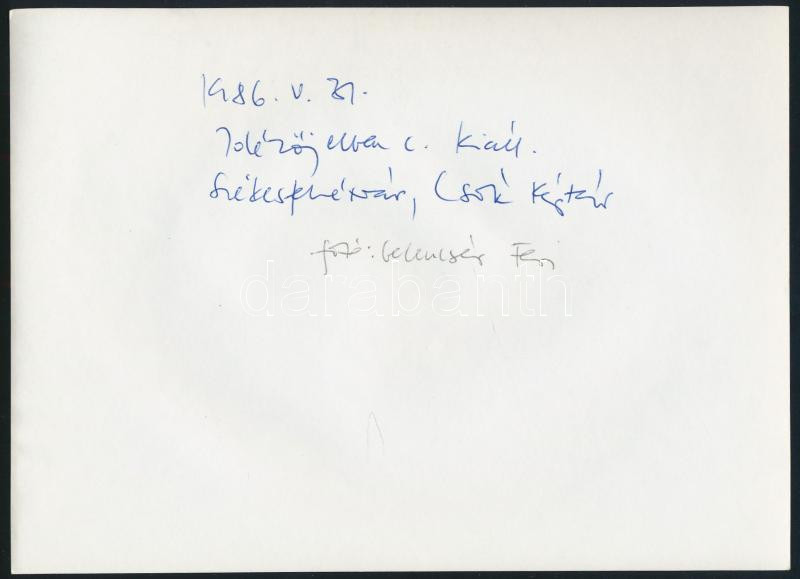 1986. V. 31.
Idézőjelben c. kiáll.
Székesfehérvár, Csók Képtár
fotó: Gelencsér Feri
darabanth